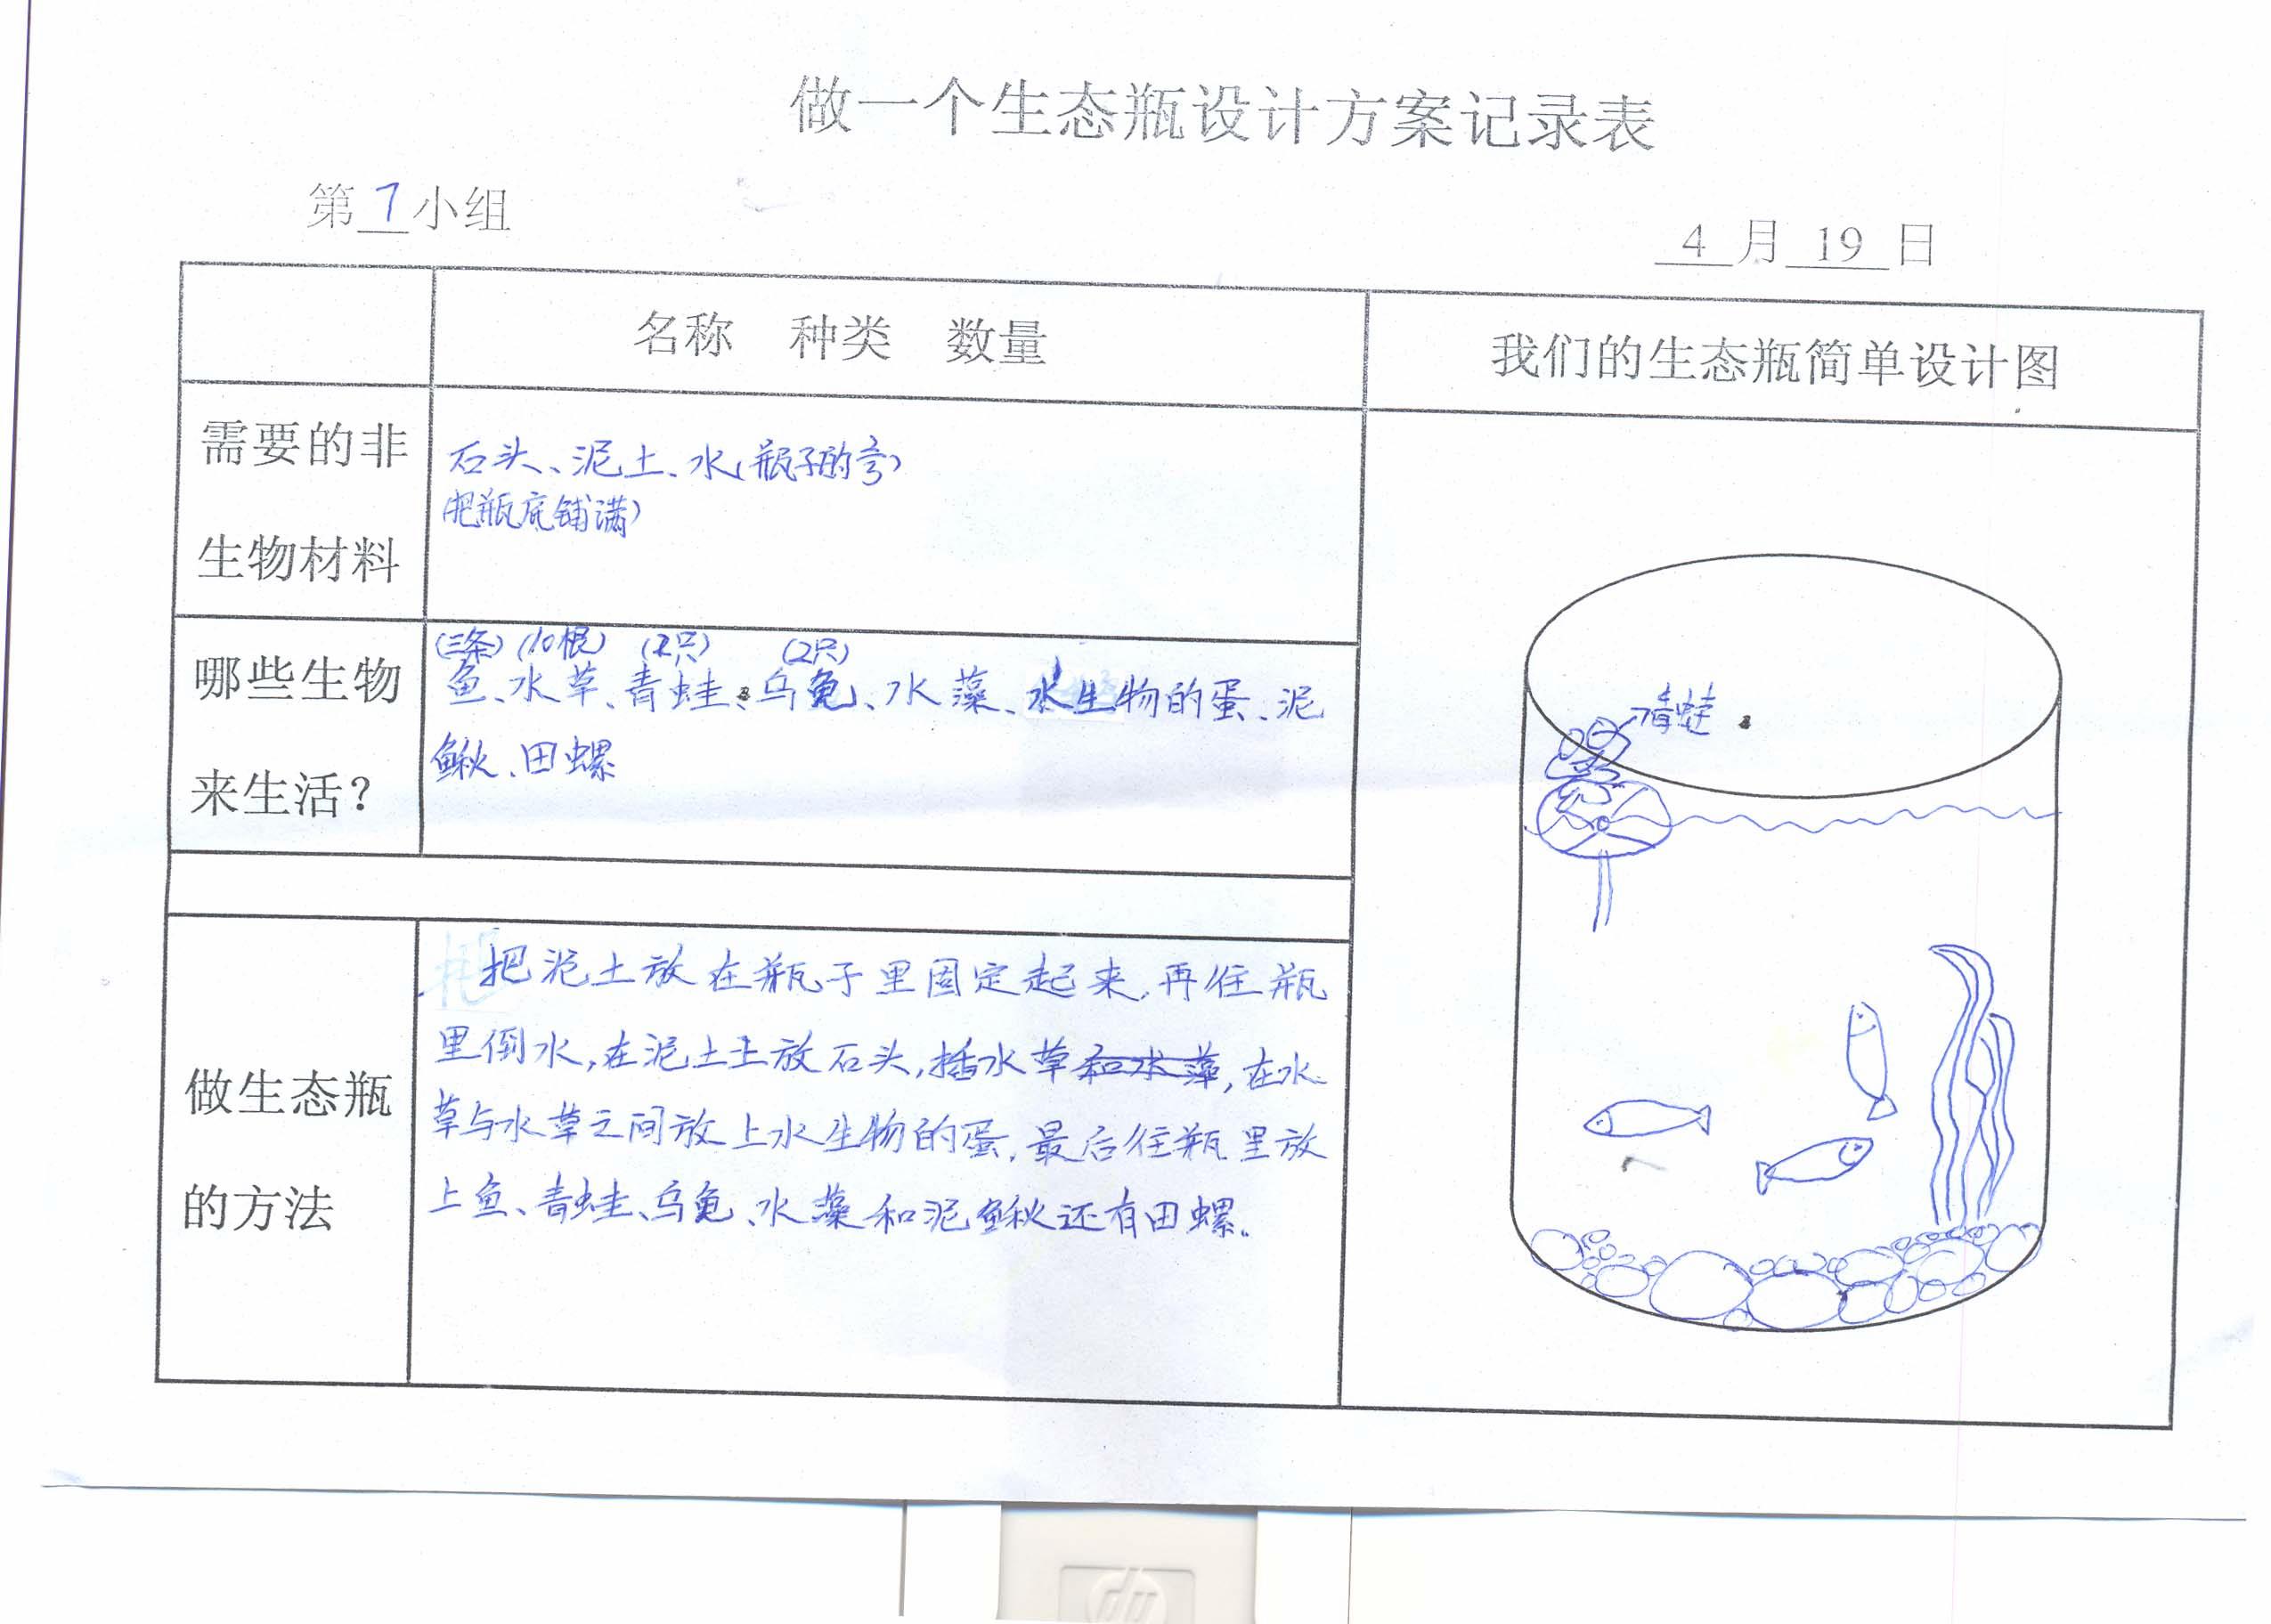 做一个生态瓶设计方案记录表
第7小组
4月19日
名称 种类 数量
我们的生态瓶简单设计图
需要的非
生物材料
石头、泥土、水(瓶子的)
(把瓶底铺满)
哪些生物
来生活?
(三条)(10根)(2只)(2只)
鱼、水草、青蛙、乌龟、水藻、水生物的蛋、泥
鳅、田螺
青蛙
做生态瓶
的方法
把泥土放在瓶子里固定起来,再往瓶
里倒水,在泥土上放石头,插水草和水藻,在水
草与水草之间放上水生物的蛋,最后往瓶里放
上鱼、青蛙、乌龟、水藻和泥鳅还有田螺。
hp